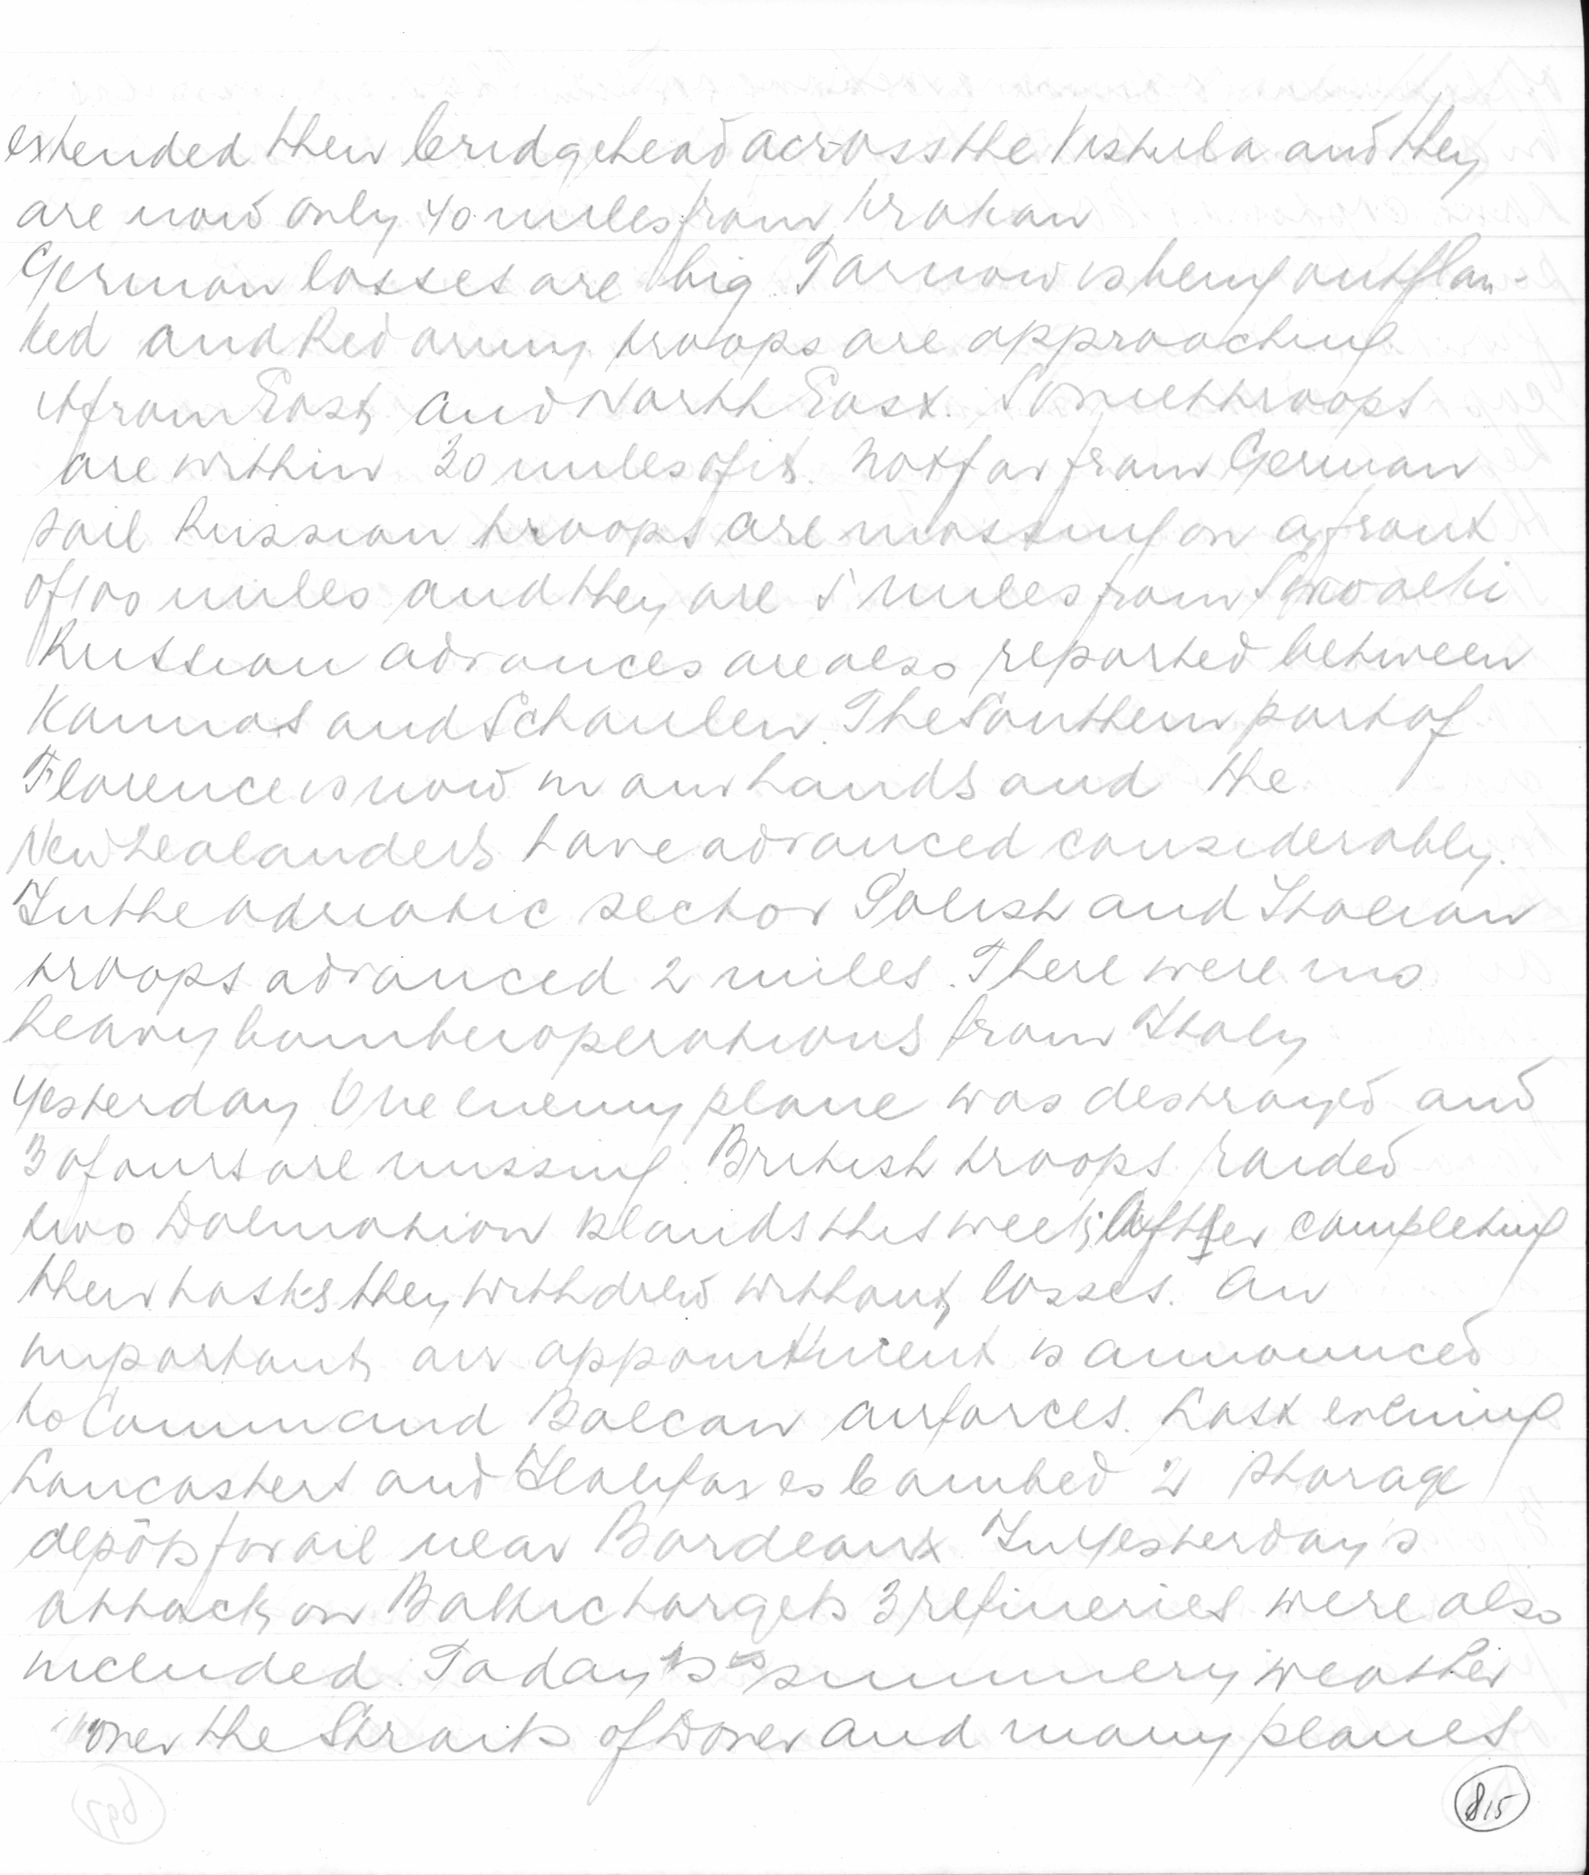 extended their bridgehead across the Vistula and they
are now only 40 miles from Krakau
German losses are big. Tarnow is being outflan-
ked and Red army troops are approaching
it from East and North East. Soviet troops
are within 30 miles of it. Not far from German
soil Russian troops are massing on a front
of 100 miles and they are 5 miles from Suwalki
Russian advances are also reported between
Kaunas and Schaulen. The Southern part of
Florence is now in our hands and the
New Zealanders have advanced considerably.
In the adriatic sector Polish and Italian
troops advanced 2 miles. There were no
heavy bomber operations from Italy
yesterday One enemy plane was destroyed and
3 of ours are missing. British troops raided
two Dalmation islands this week; After completing
their tasks they withdrew without losses. An
important air appointment is announced
to Command Balcan airforces. Last evening
Lancasters and Halifaxes bombed 2 storage
depôts for oil near Bordeaux. In yesterday's
attack on Baltic targets 3 refineries were also
included. Today is summery weather
over the Straits of Dover and many planes
815